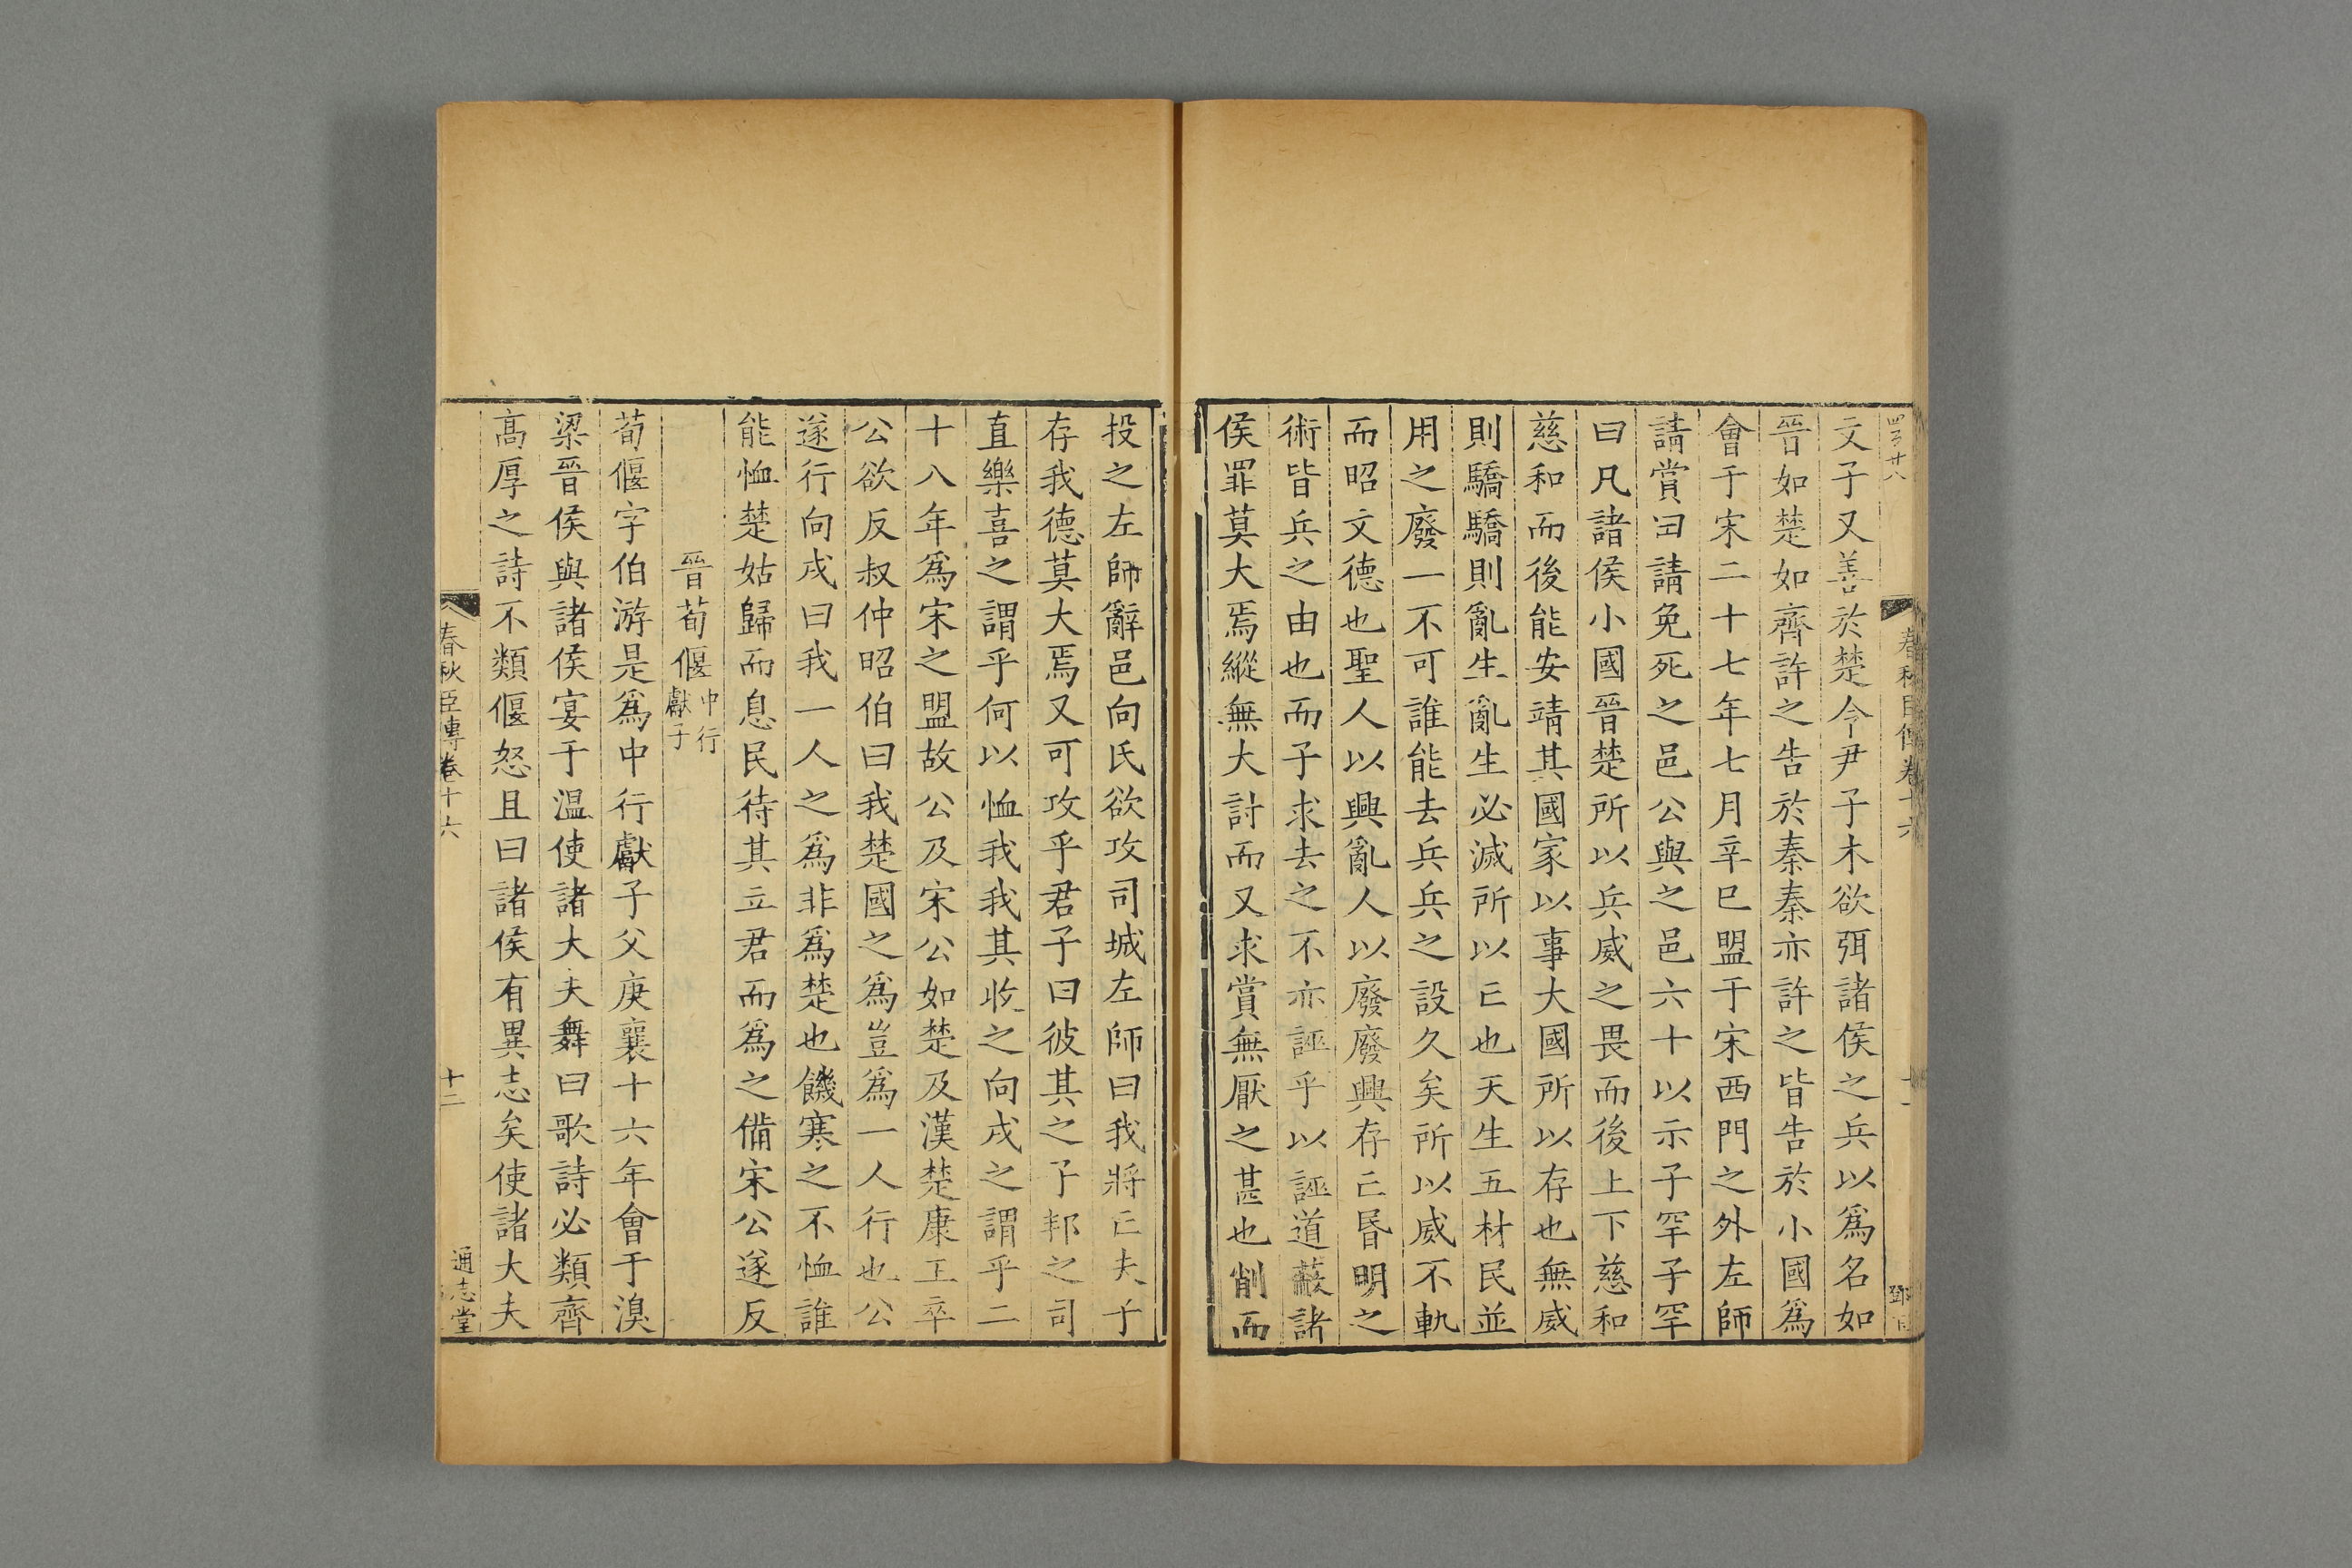 文子又善於楚令尹子木欲弭諸侯之兵以爲名如
晉如楚如齊許之告於秦秦亦許之皆告於小國爲
會于宋二十七年七月辛巳盟于宋西門之外左師
請賞曰請免死之邑公與之邑六十以示子罕子罕
曰凡諸侯小國晉楚所以兵威之畏而後上下慈和
慈和而後能安靖其國家以事大國所以存也無威
則驕驕則亂生亂生必滅所以亡也天生五材民並
用之廢一不可誰能去兵兵之設久矣所以威不軌
而昭文德也聖人以興亂人以廢廢興存亡昬明之
術皆兵之由也而子求去之不亦誣乎以誣道蔽諸
侯罪莫大焉縱無大討而又求賞無厭之甚也削而
投之左師辭邑向氏欲攻司城左師曰我將亡夫子
存我德莫大焉又可攻乎君子曰彼其之子邦之司
直樂喜之謂乎何以恤我我其收之向戌之謂乎二
十八年爲宋之盟故公及宋公如楚及漢楚康王卒
公欲反叔仲昭伯曰我楚國之爲豈爲一人行也公
遂行向戌曰我一人之爲非爲楚也饑寒之不恤誰
能恤楚姑歸而息民待其立君而爲之備宋公遂反
晉荀偃中行獻子
荀偃字伯游是爲中行獻子父庚襄十六年會于湨
梁晉侯與諸侯宴于温使諸大夫舞曰歌詩必類齊
高厚之詩不類偃怒且曰諸侯有異志矣使諸大夫
春秋臣傳卷十六
十二
通志堂